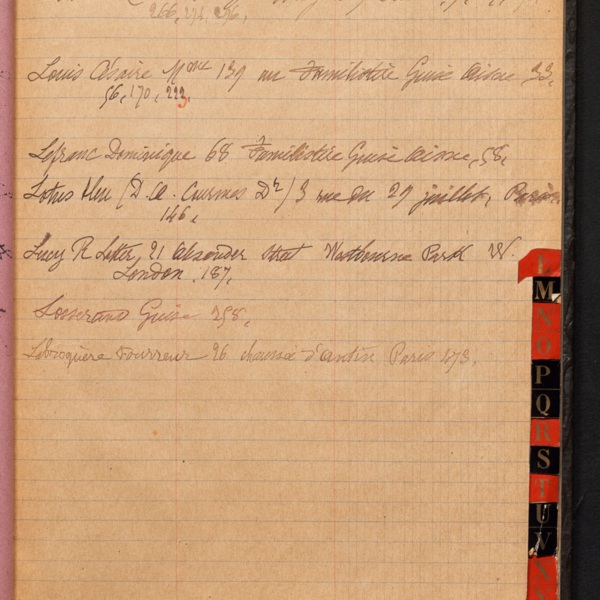 266, 274, 286,
Louis Césaire Mme 139 au Familistère Guise Aisne 33,
56, 170, 223,
Lefranc Dominique 68 Familistère Guise Aisne, 58,
Lotus bleu (D. A. Courmes Dr) 3 rue du 29 juillet, Paris
146,
Lucy R Latter, 21 Alexander Street Westbourne Park W.
London, 187,
Guise 258,
fourreur 26 chaussée d'antin Paris 473,
L
M
N
O
P
Q
R
S
T
U
V